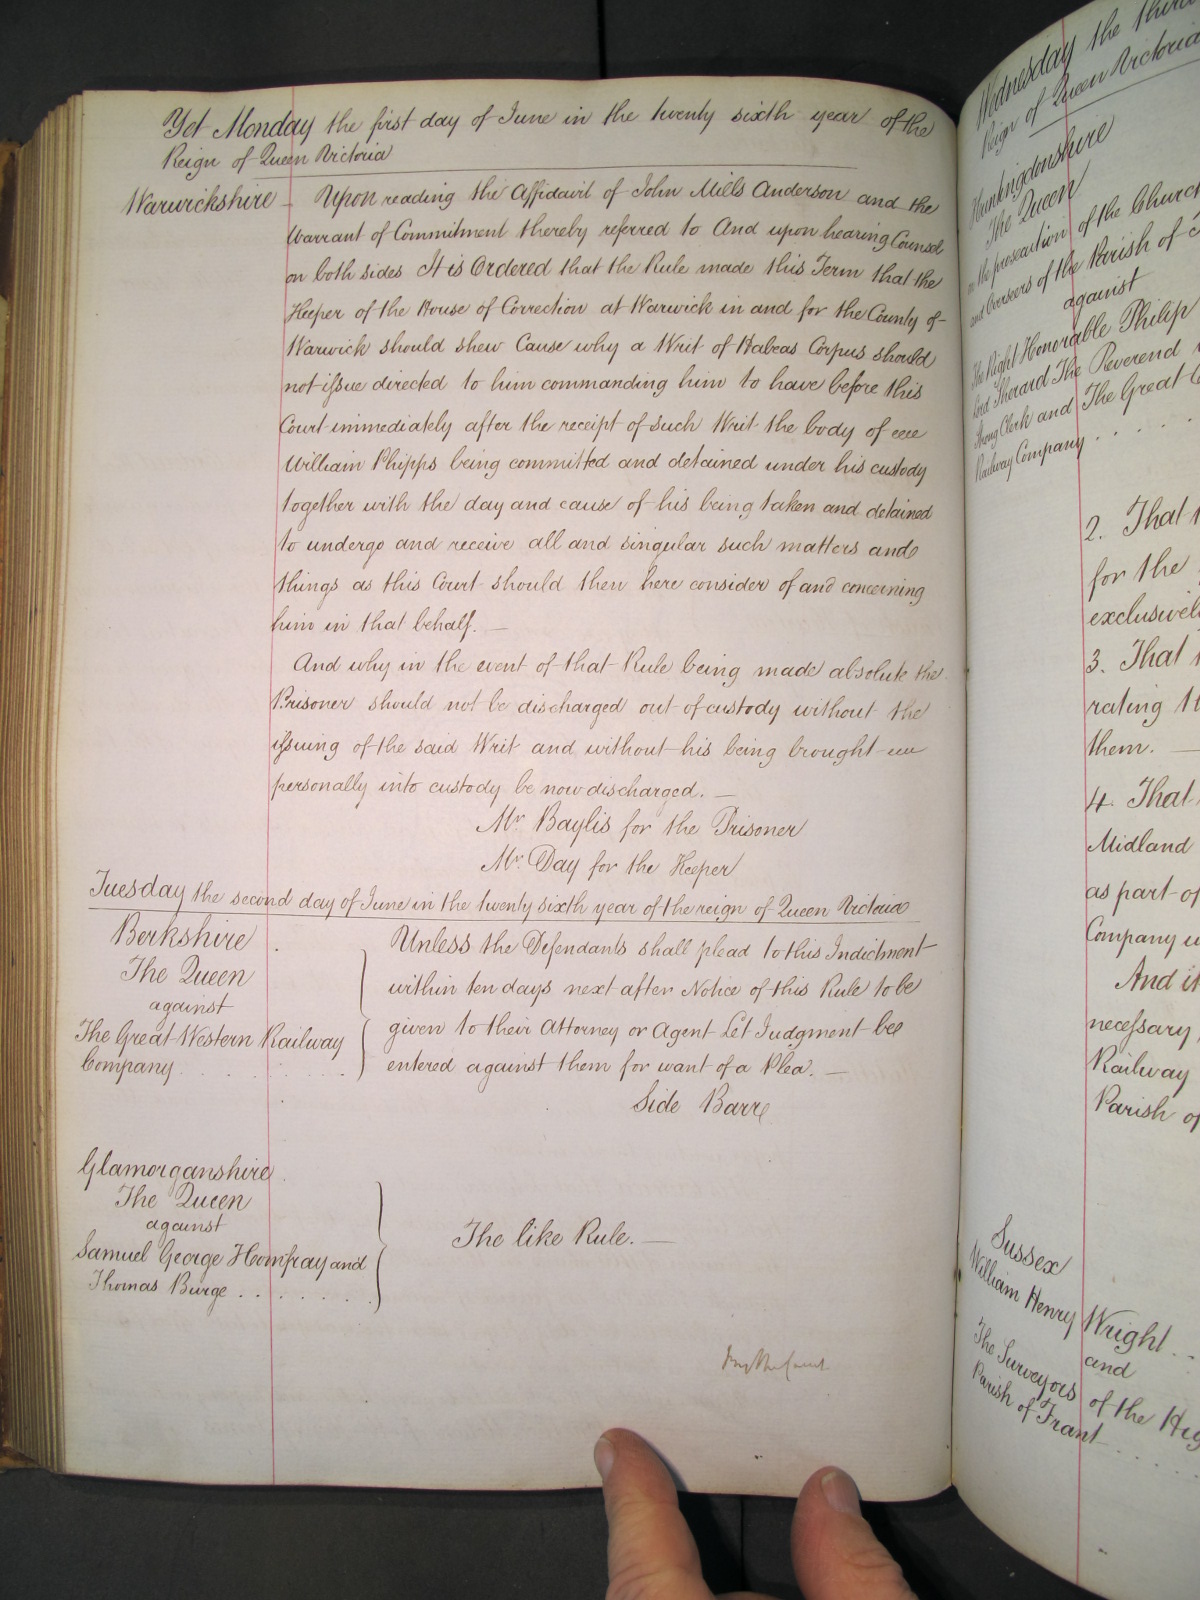 Yet Monday the first day of June in the twenty sixth year of the
Reign of Queen Victoria
Warwickshire – Upon reading the Affidavit of John Mills Anderson and the
Warrant of Commitment thereby referred to And upon hearing Counsel
on both sides It is Ordered that the Rule made this Term that the
Keeper of the House of Correction at Warwick in and for the County of
Warwick should shew Cause why a Writ of Habeas Corpus should
not issue directed to him commanding him to have before this
Court immediately after the receipt of such Writ the body of
William Phipps being committed and detained under his custody
together with the day and cause of his being taken and detained
to undergo and receive all and singular such matters and
things as this Court should then here consider of and concerning
him in that behalf. —
And why in the event of that Rule being made absolute the
Prisoner should not be discharged out of custody without the
issuing of the said Writ and without his being brought
personally into custody be now discharged. —
Mr. Baylis for the Prisoner
Mr. Day for the Keeper
Tuesday the second day of June in the twenty sixth year of the reign of Queen Victoria
Berkshire
The Queen
against
The Great Western Railway
Company . . . . . .
Unless the Defendants shall plead to this Indictment
within ten days next after Notice of this Rule to be
given to their Attorney or Agent Let Judgment be
entered against them for want of a Plea. —
Side Barr
Glamorganshire
The Queen
against
Samuel George Homfray and
Thomas Burge . . . . . .
The like Rule. —
By the Court
Wednesday the third
Reign of Queen Victoria
Huntingdonshire
The Queen
on the prosecution of the Church
and Overseers of the Parish of
against
The Right Honorable Philip
Lord Sherard The Reverend
Clerk and The Great
Railway Company . . . .
2. That
for the
exclusively
3. That
rating
them. —
4. That
Midland
as part of
Company
And it
necessary,
Railway
Parish of
Sussex
William Henry Wright . .
and
The Surveyors of the
Parish of Frant . . . .